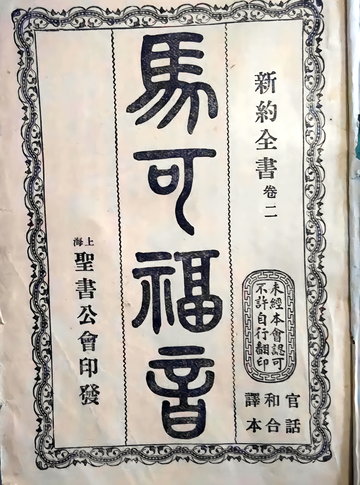 新約全書 卷二
未經本會認可
不許自行翻印
官話
和合
譯本
馬可福音
上海
聖書公會印發